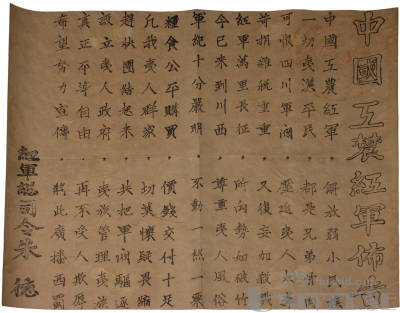 中國工農紅軍佈告
中國工農紅軍 解放弱小民族
一切夷漢平民 都是兄弟骨肉
可恨四川軍閥 壓迫夷人太毒
苛捐雜稅重重 又復妄加殺戮
紅軍萬里長征 所向勢如破竹
今已來到川西 尊重夷人風俗
軍紀十分嚴明 不動一絲一粟
糧食公平購買 價錢交付十足
凡我夷人群眾 切莫懷疑畏縮
趕快團結起來 共把軍閥驅逐
設立夷人政府 夷族管理夷族
真正平等自由 再不受人欺辱
希望努力宣傳 將此廣播西蜀
紅軍總司令朱德